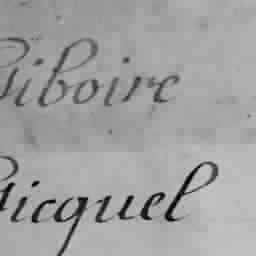 Giboire
Gicquel